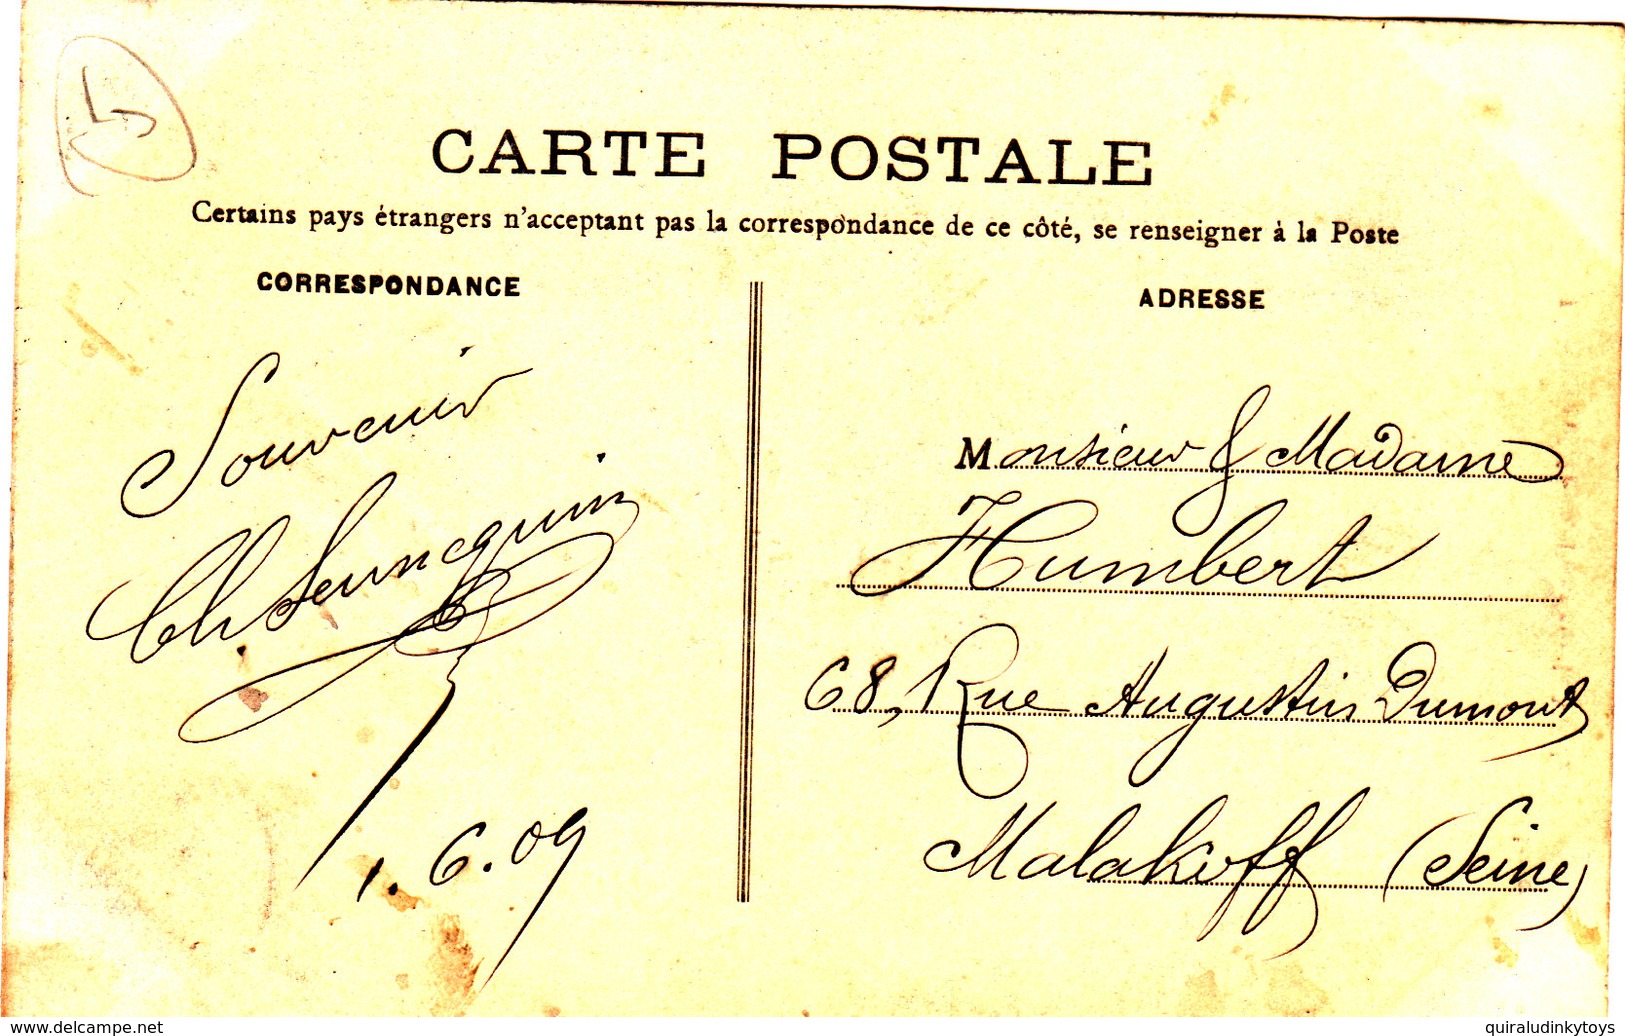 CARTE POSTALE
Certains pays étrangers n'acceptant pas la correspondance de ce côté, se renseigner à la Poste
CORRESPONDANCE
ADRESSE
Souvenir
Ch.
1.6.09
Monsieur & Madame
Humbert
68, Rue Augustin Dumont
Malakoff (Seine)
www.delcampe.net
quiraludinkytoys